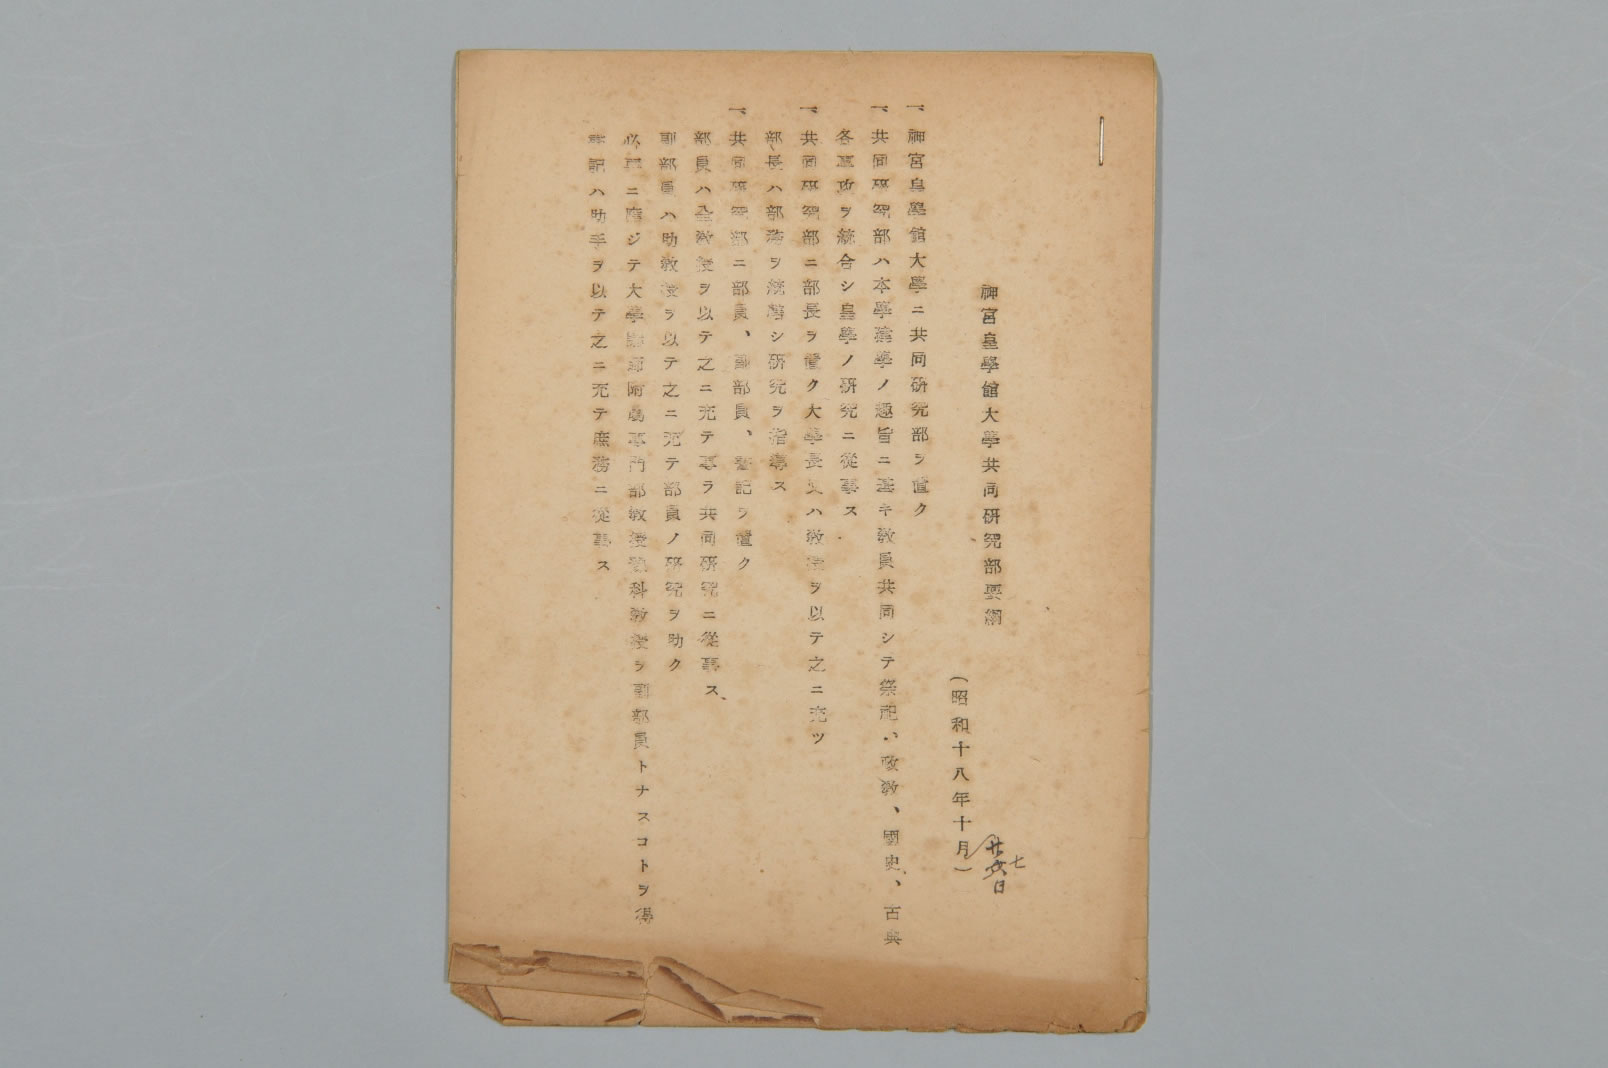 神宮皇學館大學共同硏究部要綱
(昭和十八年十月)
廿六日
七
一、神宮皇學館大學ニ共同硏究部ヲ置ク
一、共同硏究部ハ本學建學ノ趣旨ニ基キ敎員共同シテ祭祀、政敎、國史、古典
各專攻ヲ統合シ皇學ノ硏究ニ從事ス
一、共同硏究部ニ部長ヲ置ク大學長又ハ敎授ヲ以テ之ニ充ツ
部長ハ部務ヲ統轄シ硏究ヲ指導ス
一、共同硏究部ニ部員、副部員、書記ヲ置ク
部員ハ全敎授ヲ以テ之ニ充テ專ラ共同硏究ニ從事ス
副部員ハ助敎授ヲ以テ之ニ充テ部員ノ硏究ヲ助ク
必要ニ應ジテ大學講師附屬專門部敎授豫科敎授ヲ副部員トナスコトヲ得
書記ハ助手ヲ以テ之ニ充テ庶務ニ從事ス